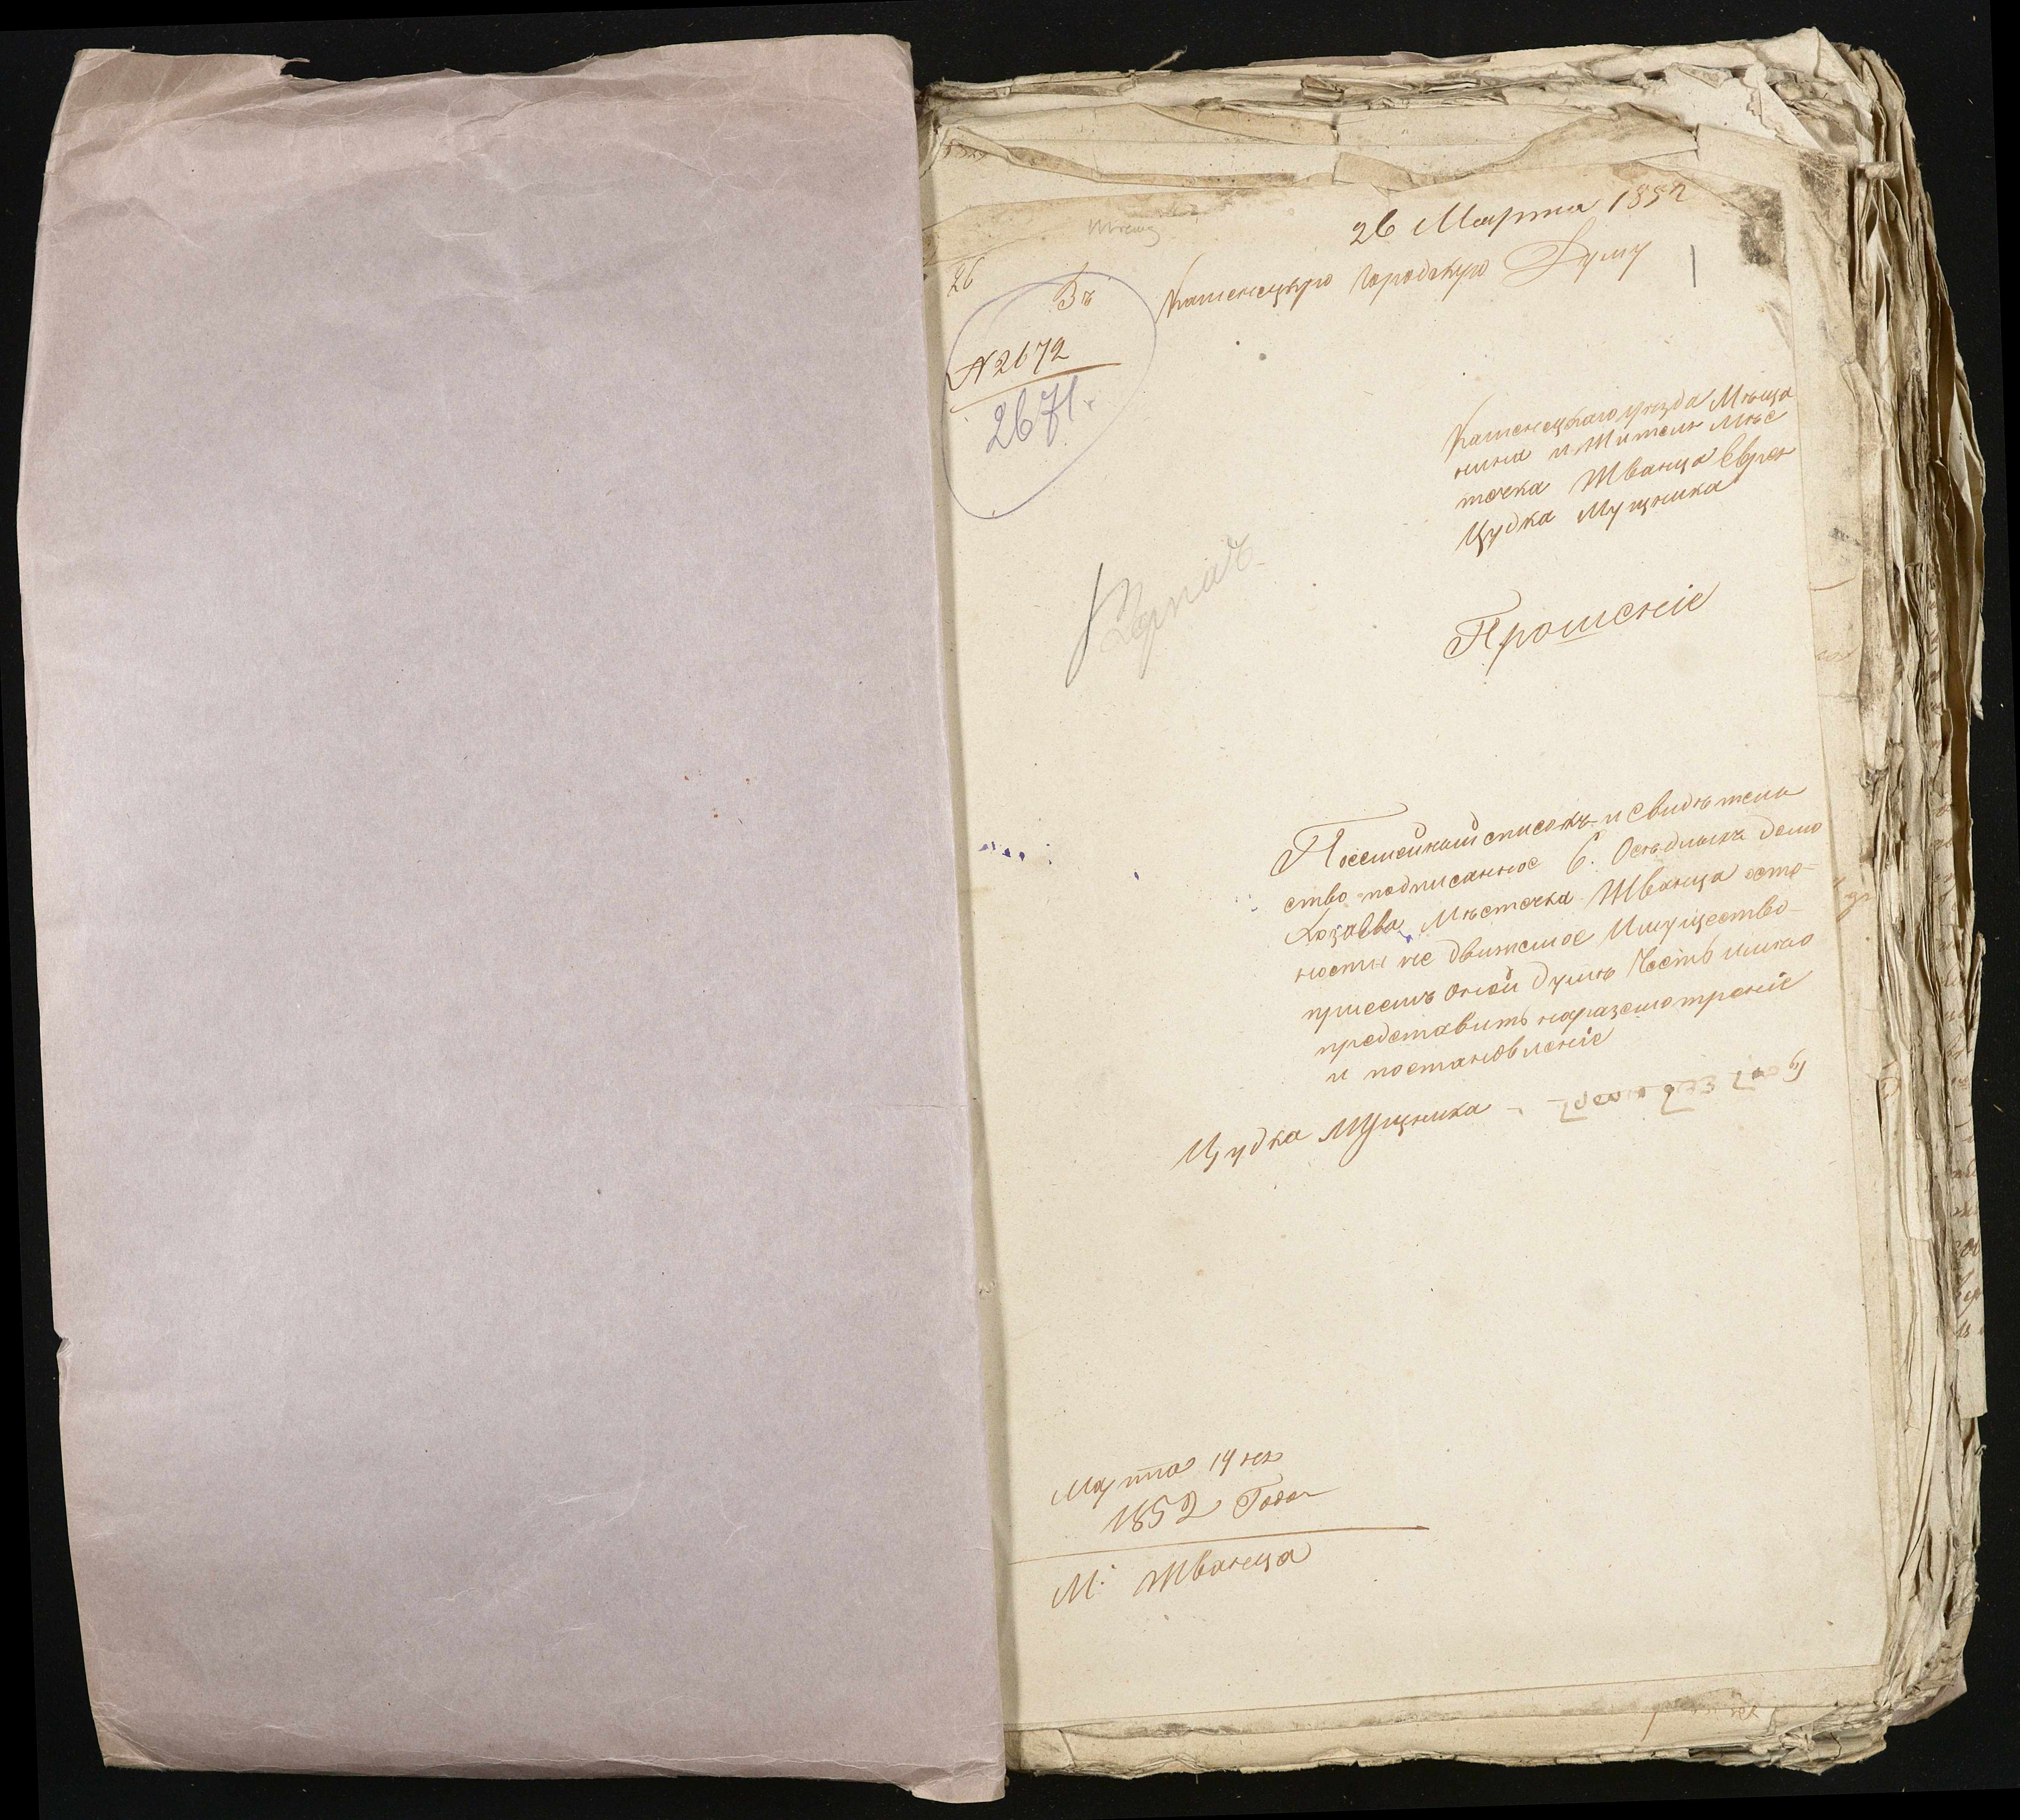 26 Марта 1852
26
Въ Каменецкую Городскую Думу
1
N 2672
2671.
Каменецкаго уезда Мѣща
нина и Жителя Мѣс
точка Жванца Еврея
Цудка Мущника
Прошеніе
Посемейный списокъ и Свидѣтель
ство подписанное 6. Осѣдлыхъ домо
Хозяева Мѣсточка Жванца
ности не движемое Имущество
присемъ оной думѣ Честь имею
представить на разсмотреніе
и постановленіе
Цудка Мущника
Марта 19 ня
1852 Года
М. Жванца